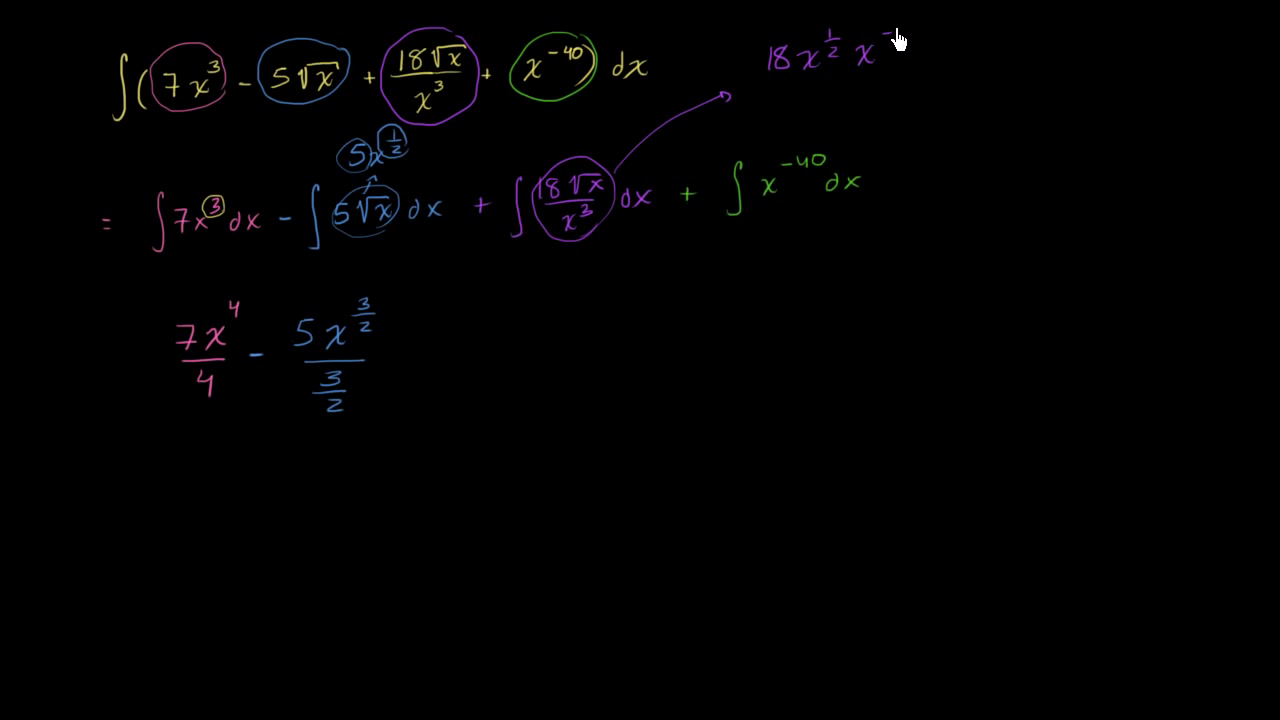 ∫(7x³ - 5√x + 18√x/x³ + x⁻⁴⁰) dx
18x^(1/2) x⁻
5x^(1/2)
= ∫7x³ dx - ∫5√x dx + ∫18√x/x³ dx + ∫x⁻⁴⁰ dx
7x⁴/4 - 5x^(3/2)/(3/2)